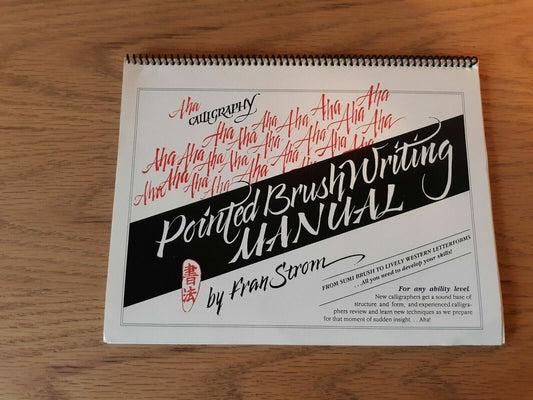 Aha
CALLIGRAPHY
Aha Aha Aha Aha Aha
Aha Aha Aha Aha Aha Aha
Aha Aha Aha Aha Aha Aha
Pointed Brush Writing
MANUAL
書法
by Fran Strom
FROM SUMI BRUSH TO LIVELY WESTERN LETTERFORMS
. . . All you need to develop your skills!
For any ability level.
New calligraphers get a sound base of
structure and form, and experienced calligra-
phers review and learn new techniques as we prepare
for that moment of sudden insight. . . Aha!